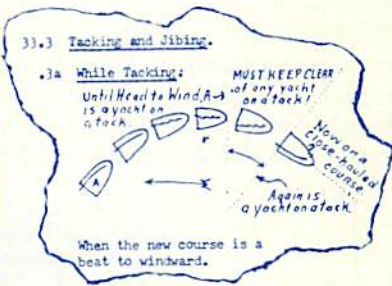 33.3 Tacking and Jibing.
.3a While Tacking:
Until Head to Wind, A→
is a yacht on
a tack.
MUST KEEP CLEAR
of any yacht
on a tack!
Now on a
close-hauled
course
A
Again is
a yacht on a tack
When the new course is a
beat to windward.